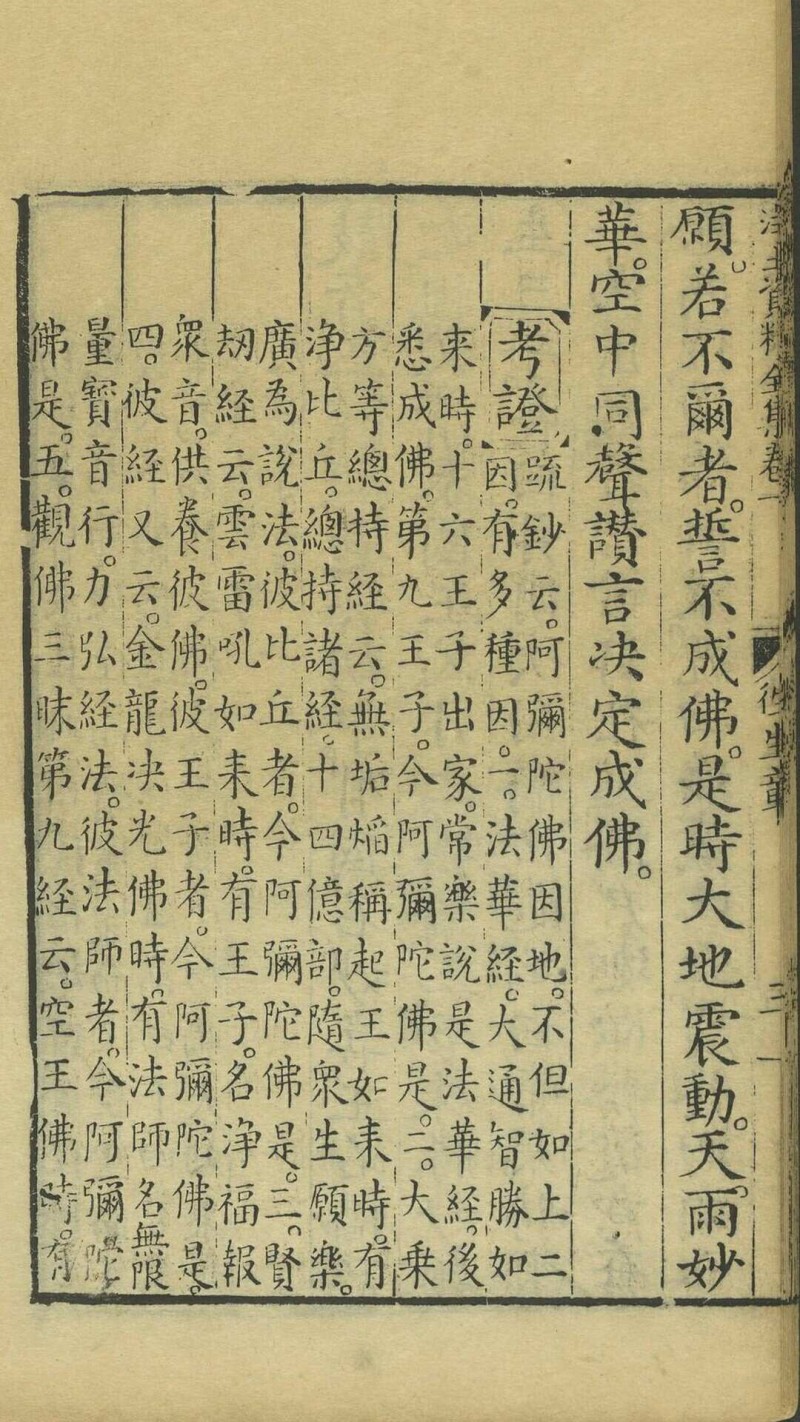 願。若不爾者。誓不成佛。是時大地震動。天雨妙
華。空中同聲讃言决定成佛。
考證
疏鈔云。阿彌陀佛因地。不但如上二
因。有多種因。一。法華經。大通智勝如
来時。十六王子出家。常樂說是法華經。後
悉成佛。第九王子。今阿彌陀佛是。二。大乗
方等總持経云。無垢焰稱起王如来時。有
淨比丘。總持諸経。十四億部。隨衆生願樂。
廣為說法。彼比丘者。今阿彌陀佛是。三。賢
刼経云。雲雷吼如来時。有王子。名淨福報
衆音。供養彼佛。彼王子者。今阿彌陀佛是。
四。彼経又云。金龍决光佛時。有法師名無限
量寳音行。力弘経法。彼法師者。今阿彌陀
佛是。五。觀佛三昧第九経云。空王佛時。有
淨土資粮全集卷一 往生章 三